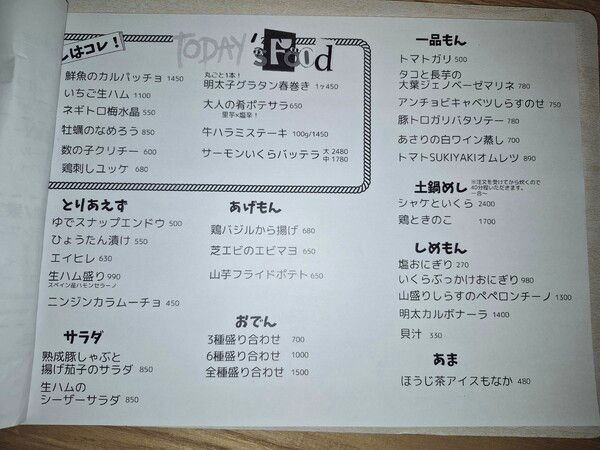 しはコレ！
TODAY'S Food
鮮魚のカルパッチョ 1450
いちご生ハム 1100
ネギトロ梅水晶 550
牡蠣のなめろう 850
数の子クリチー 600
鶏刺しユッケ 680
丸ごと1本！
明太子グラタン春巻き 1ヶ450
大人の肴ポテサラ 650
里芋×塩辛！
牛ハラミステーキ 100g/1450
サーモンいくらバッテラ 大 2480
中 1780
とりあえず
ゆでスナップエンドウ 500
ひょうたん漬け 550
エイヒレ 630
生ハム盛り 990
スペイン産ハモンセラーノ
ニンジンカラムーチョ 450
サラダ
熟成豚しゃぶと
揚げ茄子のサラダ 850
生ハムの
シーザーサラダ 850
あげもん
鶏バジルから揚げ 680
芝エビのエビマヨ 650
山芋フライドポテト 650
おでん
3種盛り合わせ 700
6種盛り合わせ 1000
全種盛り合わせ 1500
一品もん
トマトガリ 500
タコと長芋の
大葉ジェノベーゼマリネ 780
アンチョビキャベツしらすのせ 750
豚トロガリバタソテー 780
あさりの白ワイン蒸し 700
トマトSUKIYAKIオムレツ 890
土鍋めし
※注文を受けてから炊くので
40分程いただきます。
一合〜
シャケといくら 2400
鶏ときのこ 1700
しめもん
塩おにぎり 270
いくらぶっかけおにぎり 980
山盛りしらすのペペロンチーノ 1300
明太カルボナーラ 1400
貝汁 330
あま
ほうじ茶アイスもなか 480